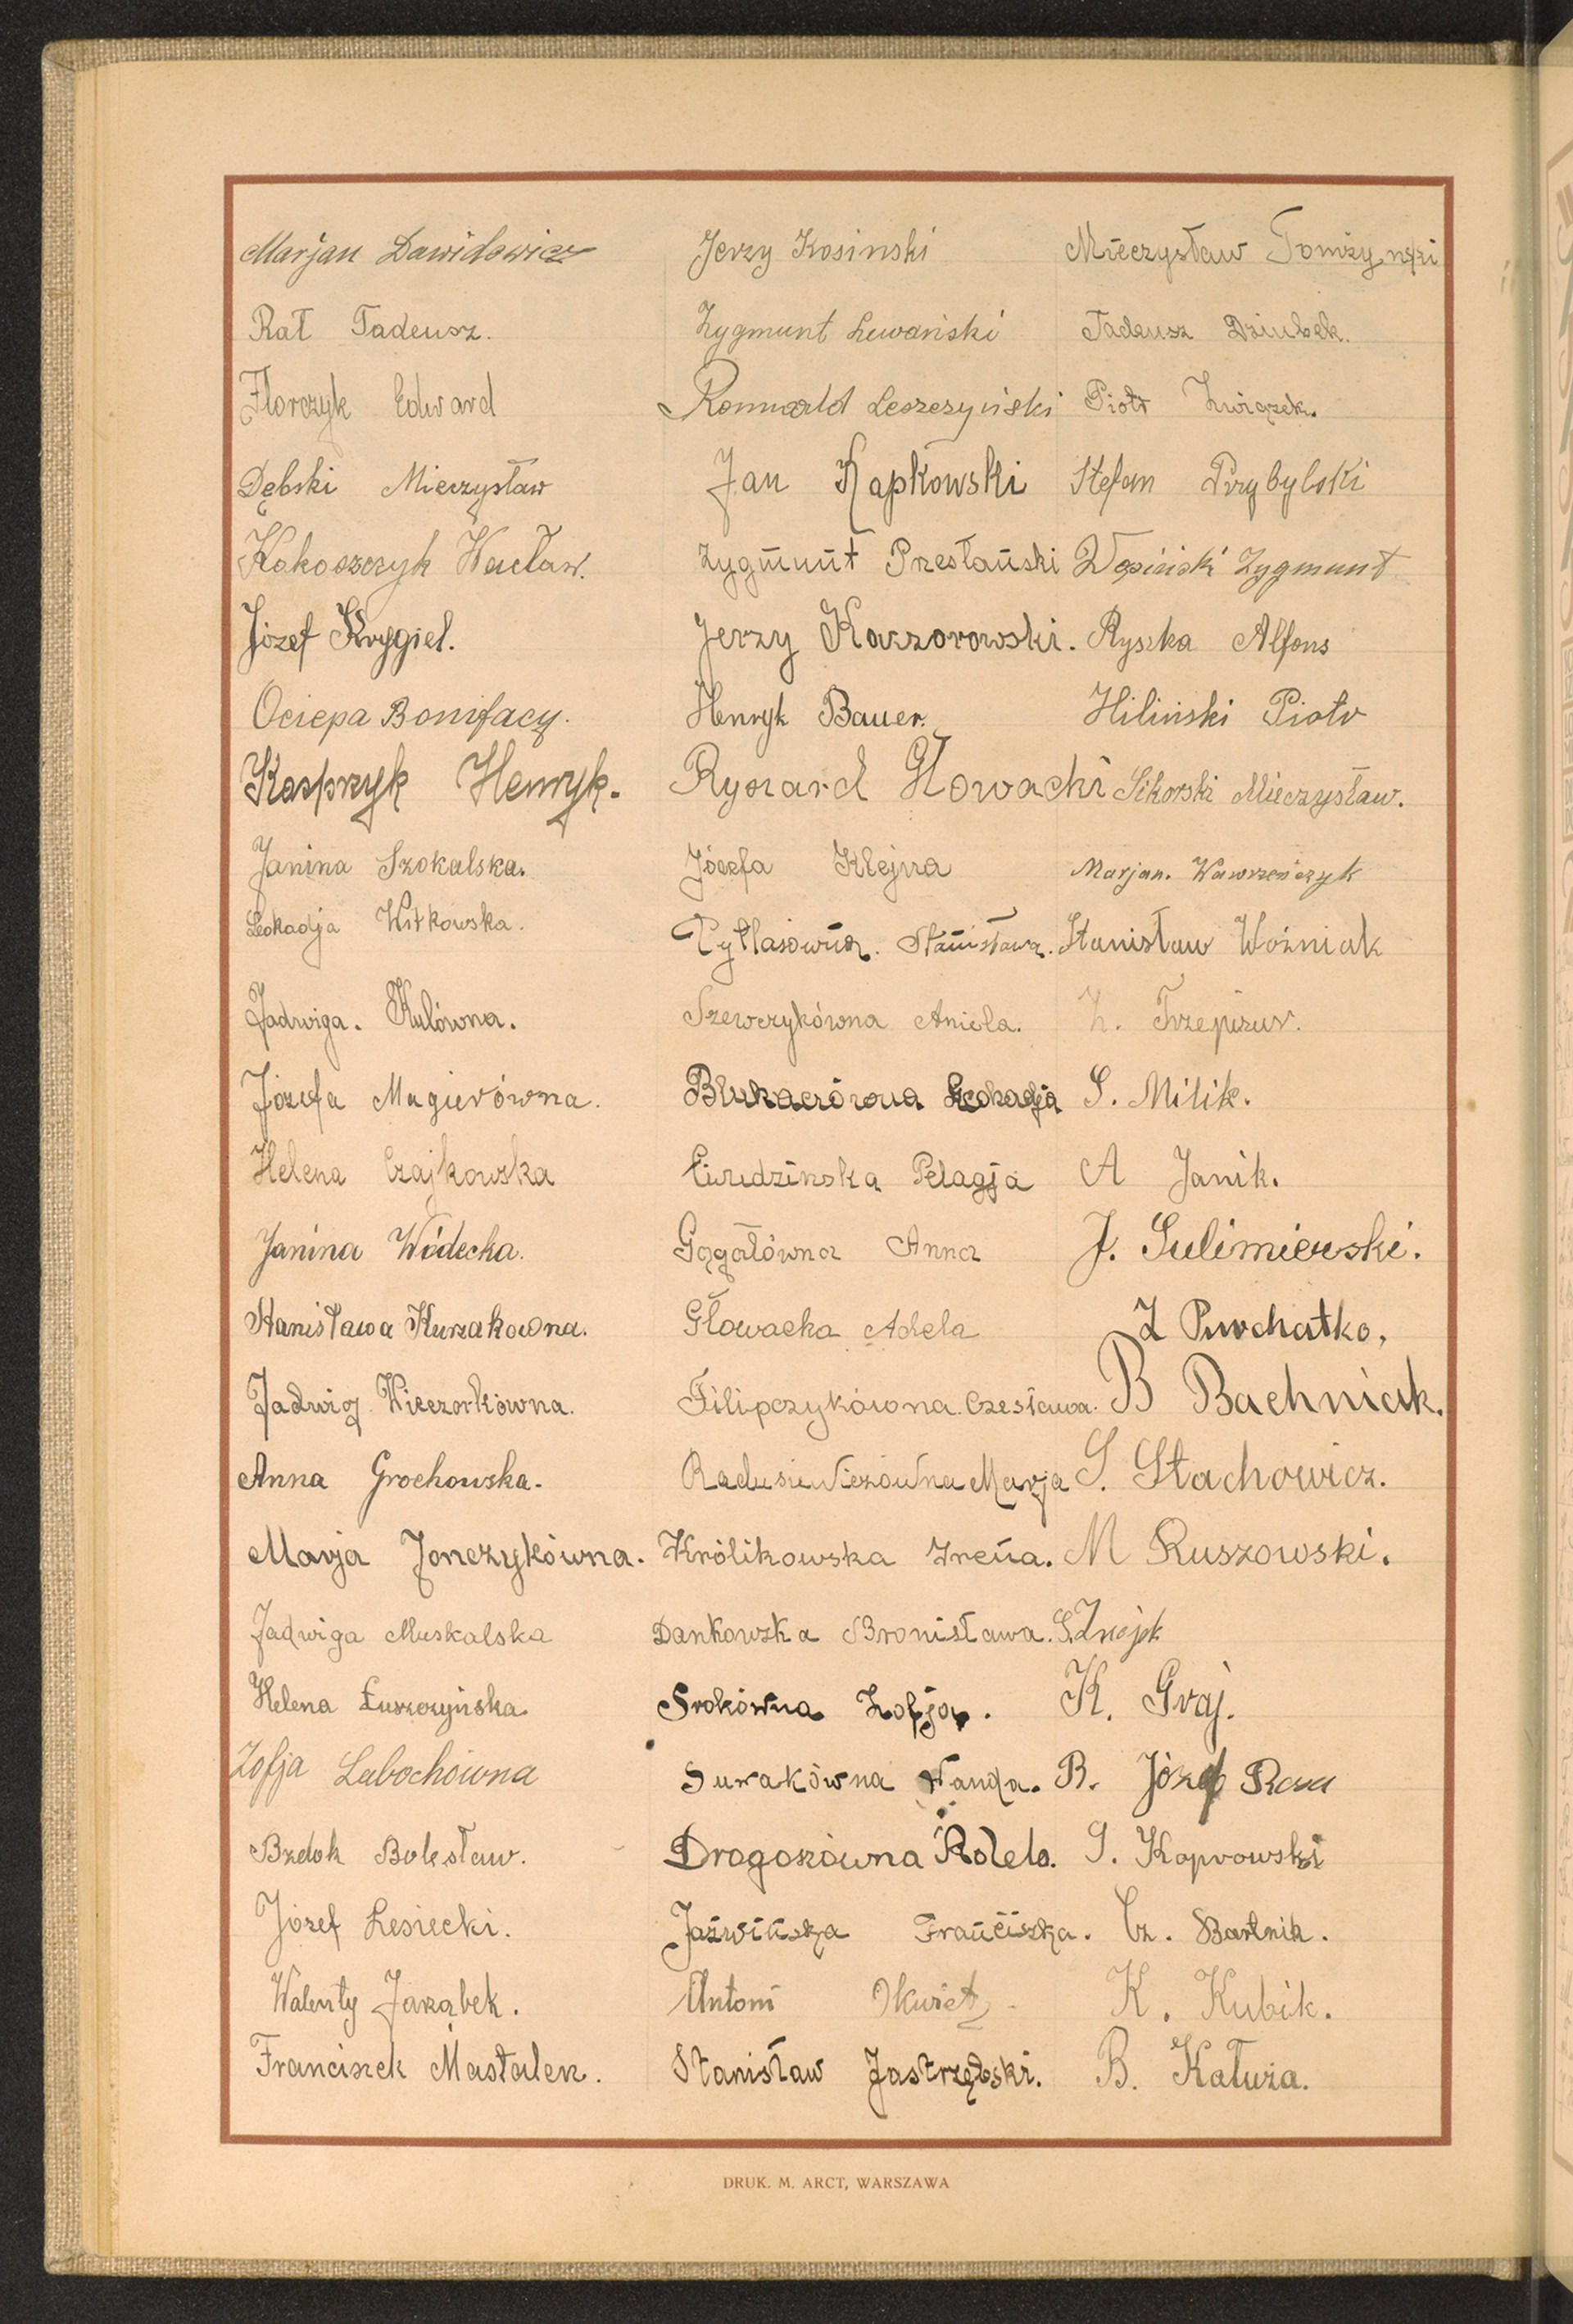 Marjan Dawidowicz
Rał Tadeusz.
Florczyk Edward
Dębski Mieczysław
Kokoszczyk Wacław.
Józef Krygiel.
Ociepa Bonifacy.
Kasprzyk Henryk.
Janina Szokalska.
Leokadja Witkowska.
Jadwiga. Kulówna.
Józefa Magierówna.
Helena Czajkowska
Janina Wódecka.
Stanisława Kurzakowna.
Jadwiga Wieczorkówna.
Anna Grochowska.
Marja Jonczykówna.
Jadwiga Muskalska
Helena Łuszczyńska
Zofja Labochówna
Bzdok Bolesław.
Józef Lesiecki.
Walenty Jarząbek.
Franciszek Mastalerz.
Jerzy Kosinski
Zygmunt Lewański
Romuald Leszczyński
Jan Kapkowski
Zygmunt Presłański
Jerzy Kaczorowski.
Henryk Bauer.
Ryszard Głowacki
Józefa Klejna
Pytlasówna. Stanisława.
Szewczykówna Aniela.
Leokadja
Pelagja
Gągałówna Anna
Głowacka Adela
Filipczykówna. Czesława.
Radusiewiczówna Marja
Królikowska Irena.
Dankowska Bronisława.
Srokówna Zofja.
Surakówna Wanda.
Dragoszówna
Jaźwińska Franciszka.
Antoni
Stanisław Jastrzębski.
Mieczysław Tomżyński
Tadeusz Dziubek.
Piotr Związek.
Stefan Przybylski
Zygmunt
Ryszka Alfons
Hiliński Piotr
Sikorski Mieczysław.
Marjan. Wawrzeńczyk
Stanisław Woźniak
Z. Trzepizur.
S. Milik.
A Janik.
J. Sulimierski.
Z Puchatko.
B Bachniak.
S. Stachowicz.
M Ruszowski.
S. Znojek
K. Graj.
R. Józef
S. Koprowski
Cz. Bartnik.
K. Kubik.
B. Kałuża.
DRUK. M. ARCT, WARSZAWA